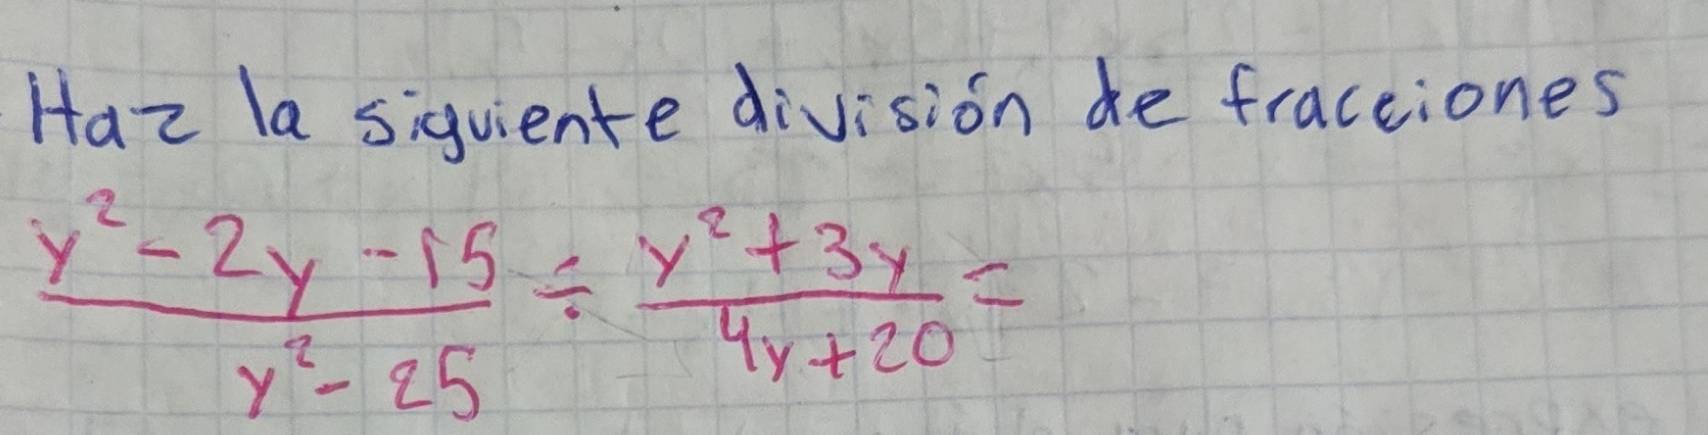 Haz la siguiente división de fracciones
y² - 2y - 15 / y² - 25 ÷ y² + 3y / 4y + 20 =